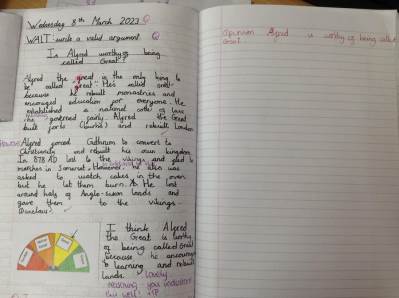 Wednesday 8th March 2023
WALT: write a valid argument
Is Alfred worthy of being
called Great?
Alfred the great is the only king to
be called "great". He's called great
because he rebuilt monasteries and
encouraged education for everyone. He
established a national code of laws
he governed fairly. Alfred the Great
built forts (burhs) and rebuilt London
Alfred forced Guthrum to convert to
Christianity and rebuilt his own kingdom.
In 878 AD lost to the vikings and fled to
marshes in Somerset. However, he also was
asked to watch cakes in the oven
but he let them burn. He lost
around half of Anglo-Saxon lands and
gave them to the vikings
Danelaw.
I think Alfred
the Great is worthy
of being called Great
because he encouraged
learning and rebuilt
lands.
Lovely
reasoning - you
Opinion Alfred is worthy of being called
Great